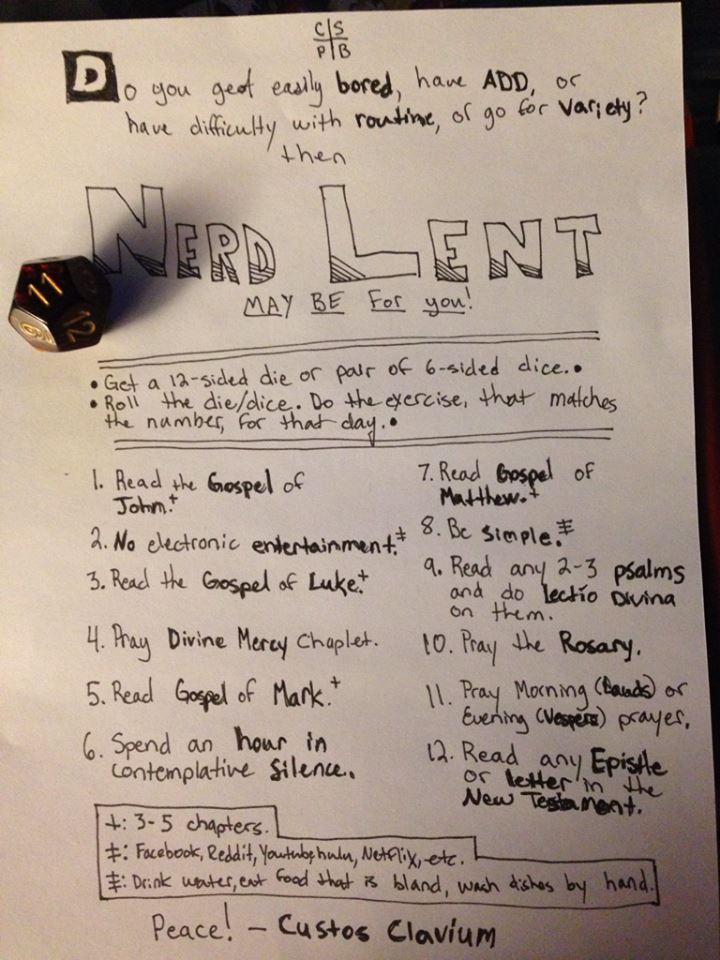 C S
P B
Do you geot easily bored, have ADD, or
have difficulty with routine, or go for variety?
then
NERD LENT
MAY BE For you!
11
12
• Get a 12-sided die or pair of 6-sided dice. •
• Roll the die/dice. Do the exercise, that matches
the number, for that day. •
1. Read the Gospel of
John.+
2. No electronic entertainment.‡
3. Read the Gospel of Luke.+
4. Pray Divine Mercy Chaplet.
5. Read Gospel of Mark.+
6. Spend an hour in
contemplative silence.
7. Read Gospel of
Matthew.+
8. Be simple.⹋
9. Read any 2-3 psalms
and do lectio Divina
on them.
10. Pray the Rosary.
11. Pray Morning (Lauds) or
Evening (Vespers) prayer.
12. Read any Epistle
or letter in the
New Testament.
+: 3-5 chapters.
‡: Facebook, Reddit, Youtube, hulu, Netflix, etc.
⹋: Drink water, eat food that is bland, wash dishes by hand.
Peace! - Custos Clavium